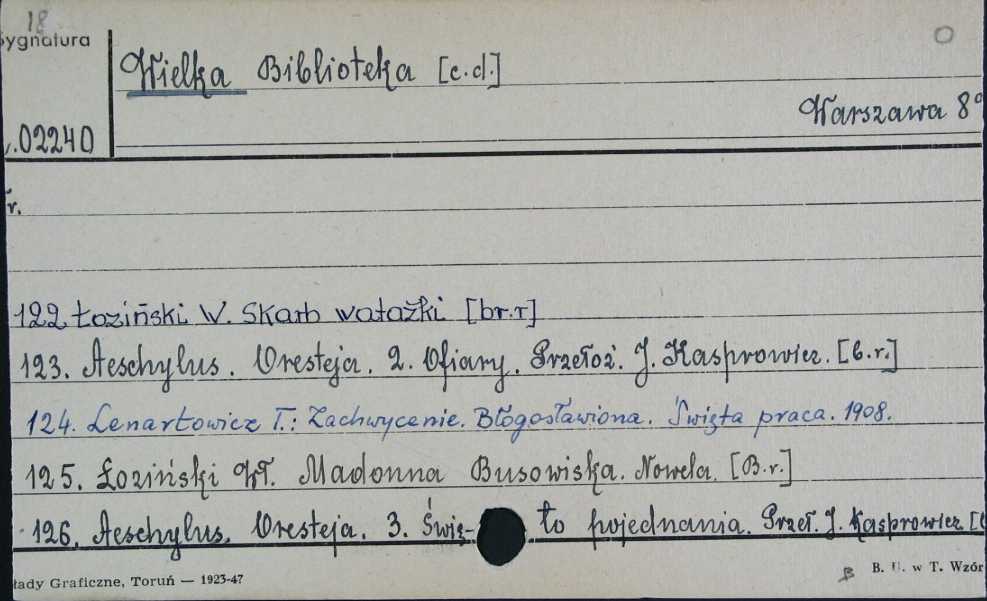 18
Sygnatura
Wielka Biblioteka [c.d.]
Warszawa 8°
.02240
r.
122 Łoziński W. Skarb watażki [br.r]
123. Aeschylus. Oresteja. 2. Ofiary. Przełoż. J. Kasprowicz. [b.r.]
124. Lenartowicz T.: Zachwycenie. Błogosławiona. Święta praca. 1908.
125. Łoziński Wł. Madonna Busowiska. Nowela. [B.r.]
126. Aeschylus. Oresteja. 3. Świę- to pojednania. Przeł. J. Kasprowicz. [
łady Graficzne, Toruń — 1923-47
B. U. w T. Wzór